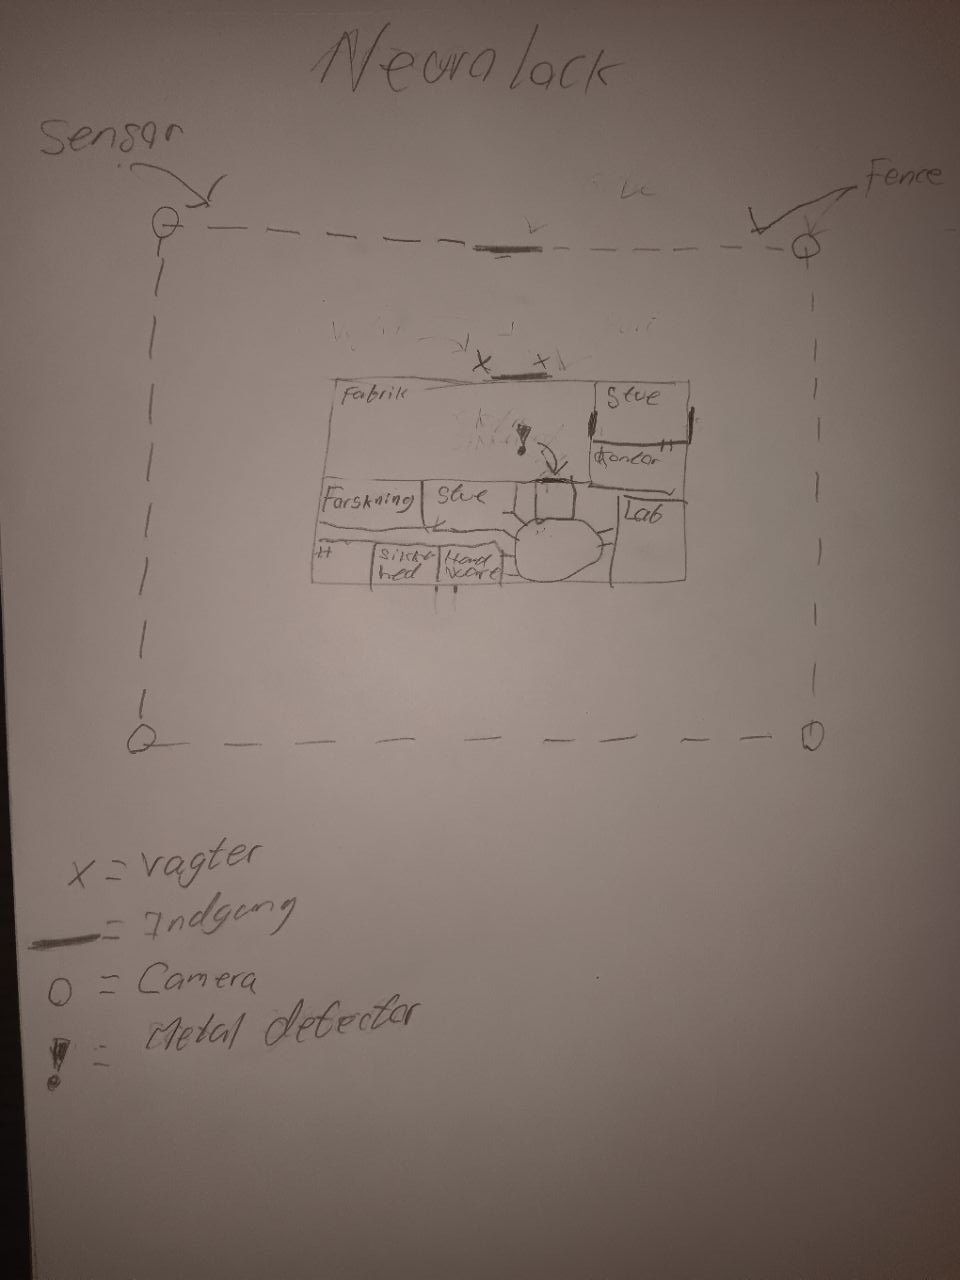 Neuralack
Sensar
Fence
x x
Fabrik
Stue
!
Kontor
Forskning
Stue
Lab
H
Sikker
hed
Hard
ware
x = vagter
= Indgang
O = Camera
! = Metal detector